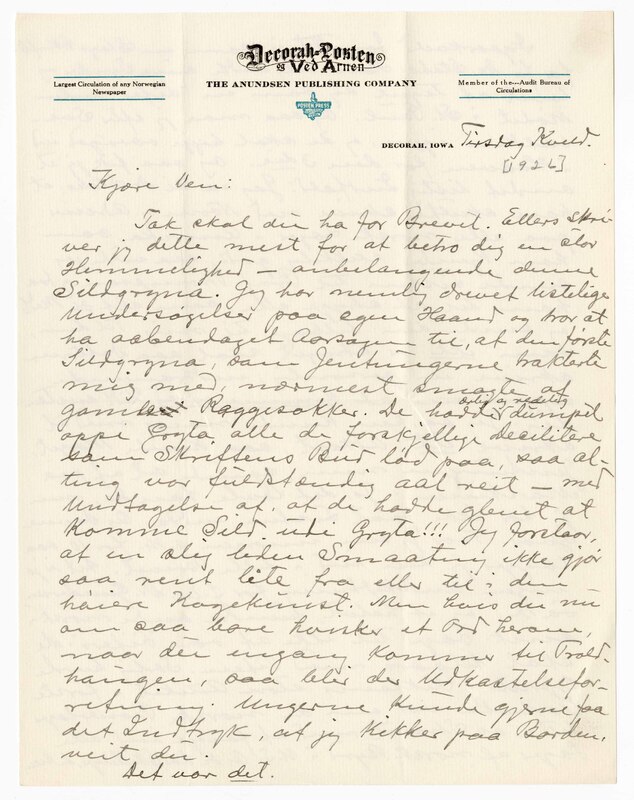 Decorah-Posten
og Ved Arnen
THE ANUNDSEN PUBLISHING COMPANY
Largest Circulation of any Norwegian
Newspaper
Member of the---Audit Bureau of
Circulations
POSTEN PRESS
DECORAH, IOWA Tirsdag Kveld.
[1926]
Kjære Ven:
Tak skal du ha for Brevet. Ellers skri-
ver jeg dette mest for at betro dig en stor
Hemmelighed – anbelangende denne
Sildgryna. Jeg har nemlig drevet listelige
Undersøgelser paa egen Haand og tror at
ha aabendaget Aarsagen til, at den første
Sildgryna, som Jentungerne trakterte
mig med, nærmest smagte af
gamle Raggesokker. De hadde ærlig og redelig dumpit
oppi Gryta alle de forskjellige Decilitere
som Skriftens Bud lød paa, saa al-
ting var fuldstændig aal reit – med
Undtagelse af, at de hadde glemt at
komme Sild udi Gryta!!! Jeg forstaar,
at en slig liden Smaating ikke gjør
saa rent lite fra eller til i den
høiere Kogekunst. Men hvis du nu
om saa bare hvisker et Ord herom,
naar du engang kommer til Trold-
haugen, saa blir der Udkastelsefor-
retning. Ungerne kunde gjerne faa
det Indtryk, at jeg kikker paa Borden,
veit du.
Det var det.